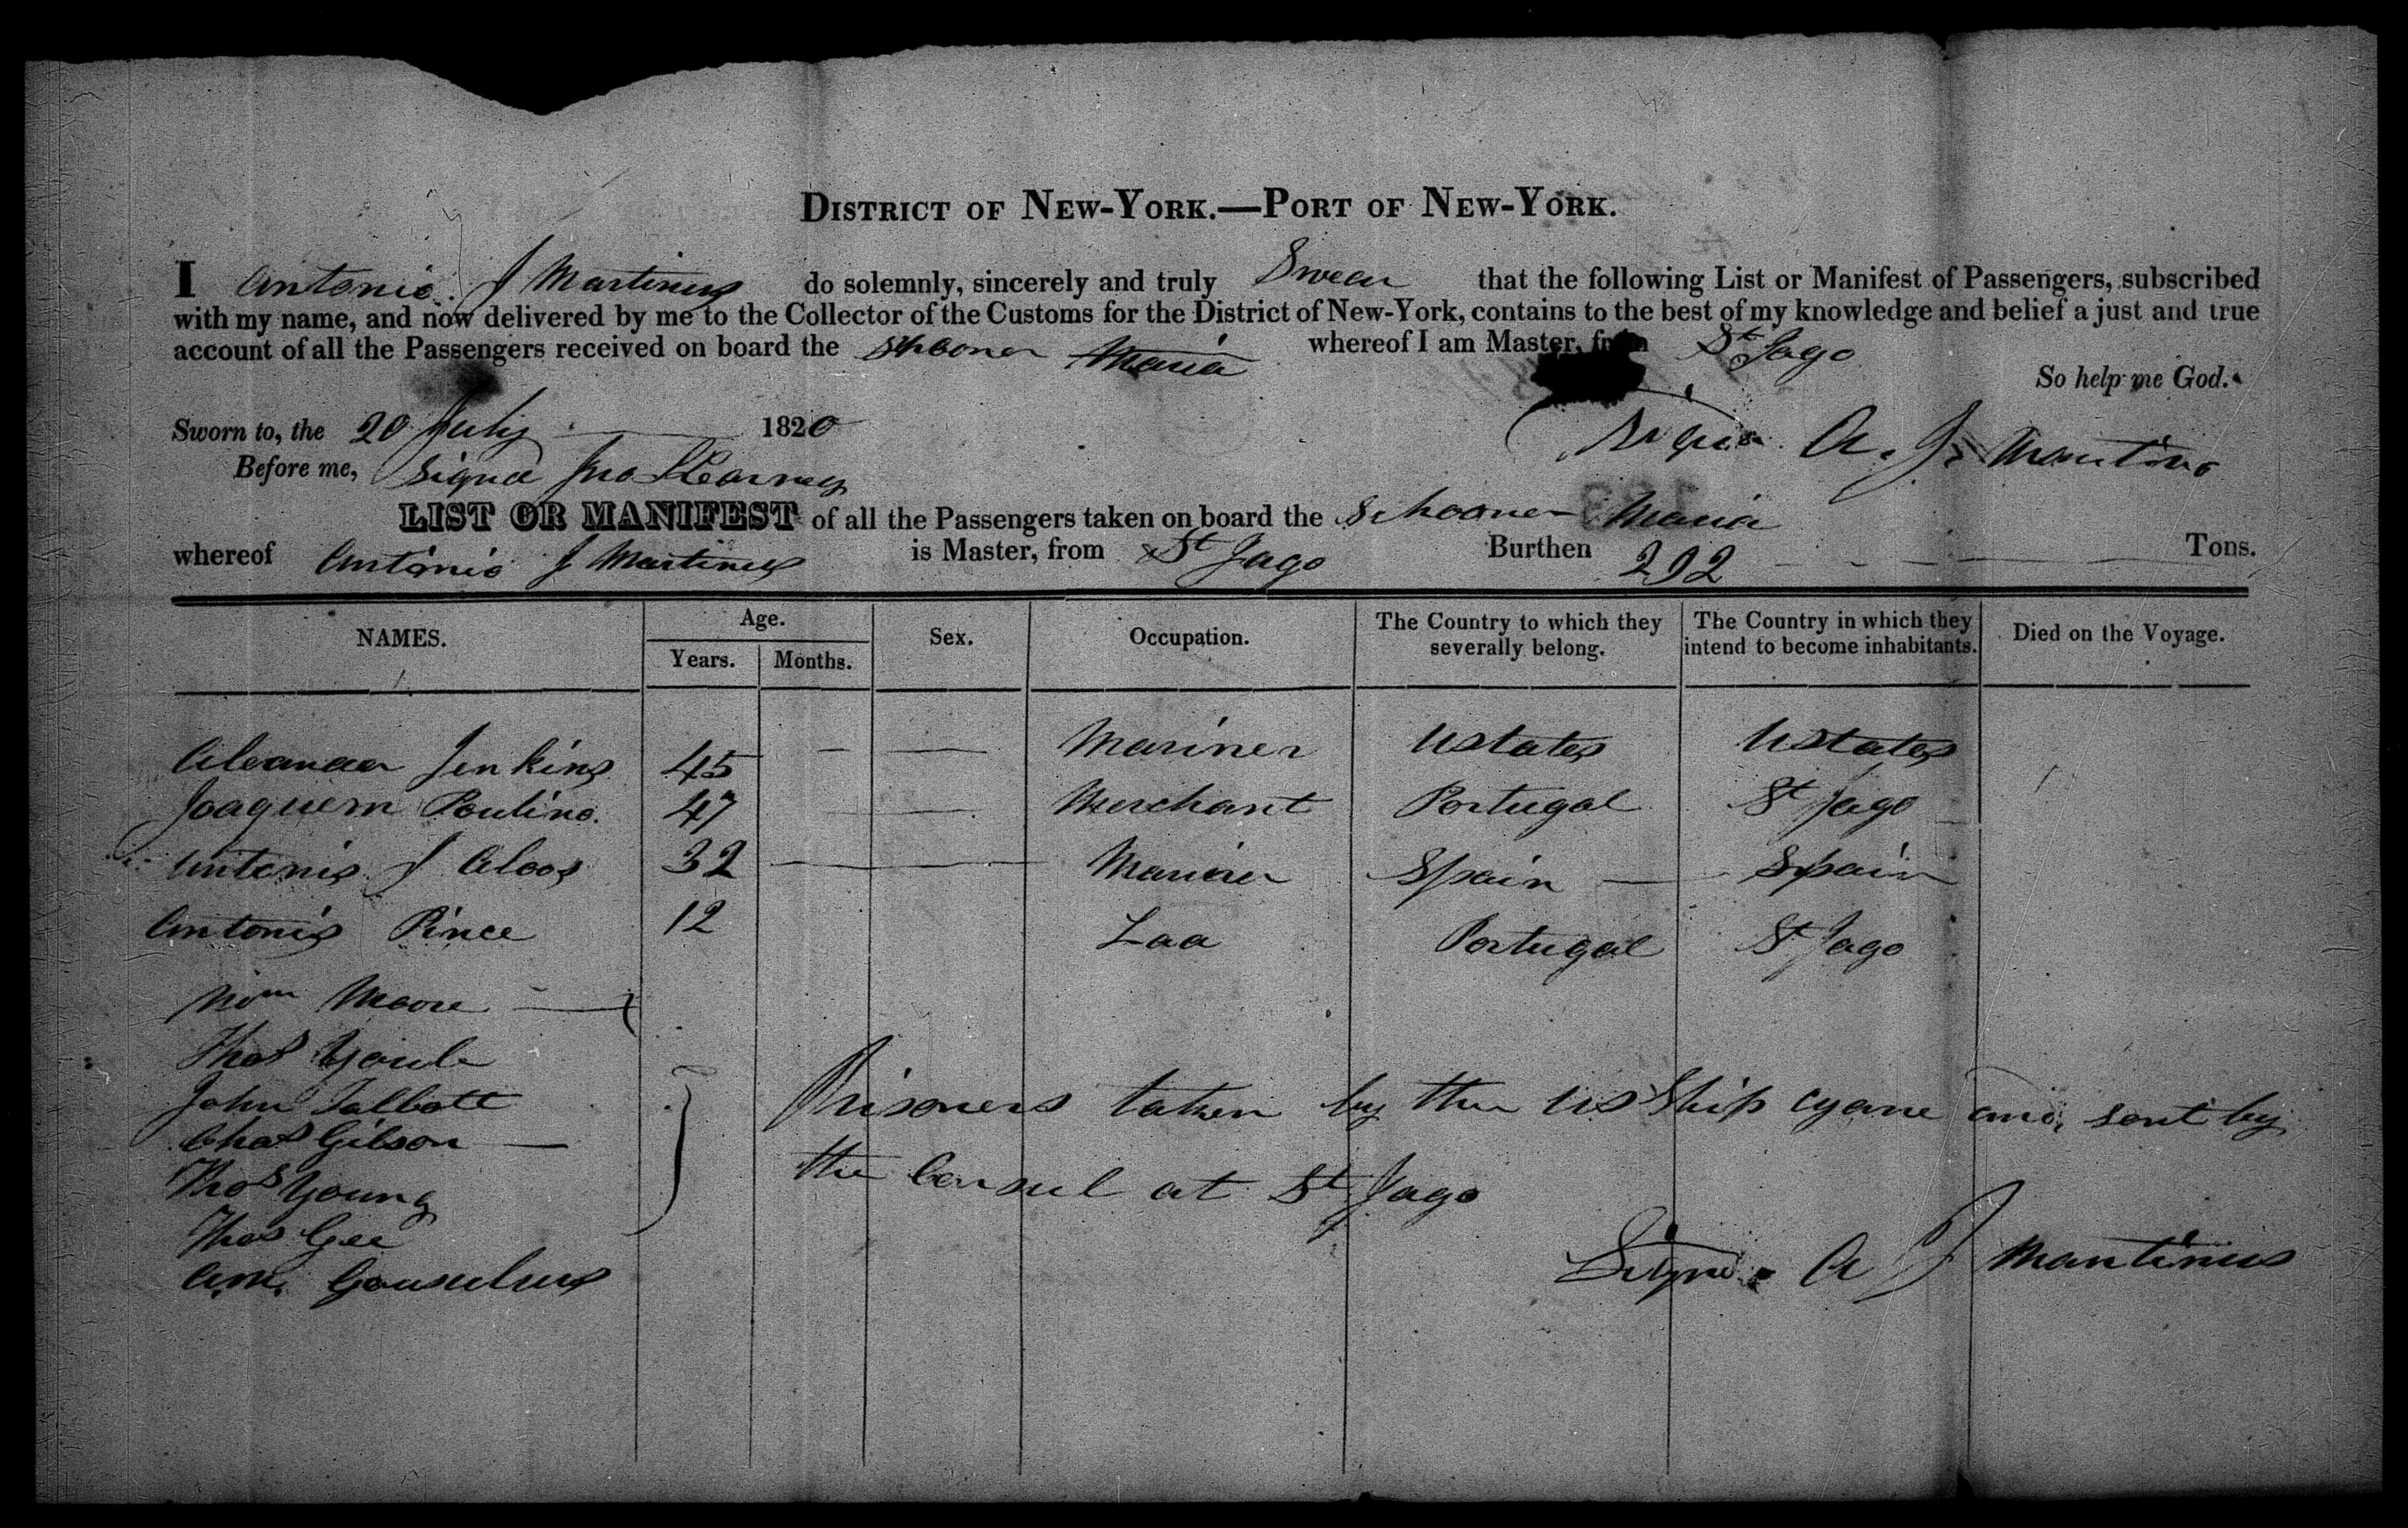 DISTRICT OF NEW-YORK.—PORT OF NEW-YORK.
I Antonio J Martines do solemnly, sincerely and truly Swear that the following List or Manifest of Passengers, subscribed
with my name, and now delivered by me to the Collector of the Customs for the District of New-York, contains to the best of my knowledge and belief a just and true
account of all the Passengers received on board the Schooner Maria whereof I am Master, from St Jago
So help me God.
Sworn to, the 20 July 1820
A. J. Martins
Before me, Signed Jno
LIST OR MANIFEST of all the Passengers taken on board the Schooner Maria
whereof Antonio J Martines is Master, from St Jago Burthen 292 Tons.
NAMES. Age. Sex. Occupation. The Country to which they severally belong. The Country in which they intend to become inhabitants. Died on the Voyage.
Years. Months.
Jenkins 45 Mariner Ustates Ustates
Joaquem Poulino. 47 Merchant Portugal St Jago
Antonio J 32 Mariner Spain Spain
Antonio Pince 12 Lad Portugal St Jago
Wm Moore
Thos
John Talbott
Chas Gibson
Thos Young
Thos Gee
Prisoners taken by the US Ship Cyane and sent by
the Consul at St Jago
Signed A J Martines